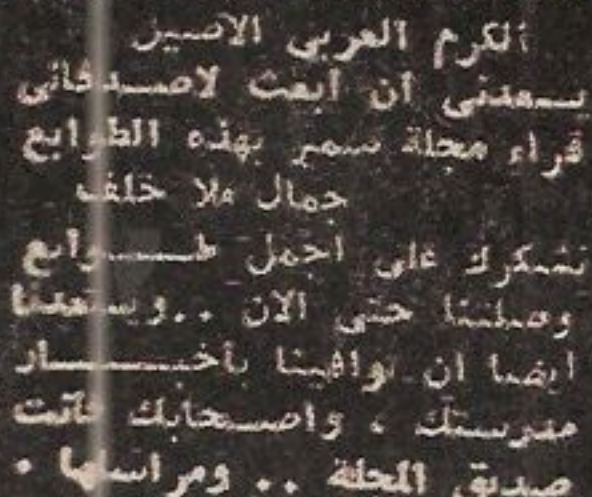 الكرم العربى الاصيل
يسعدنى ان ابعث لاصدقائى
قراء مجلة سمير بهذه الطوابع
جمال ملا خلف
نشكرك على اجمل طوابع
وصلتنا حتى الان .. ويسعدنا
ايضا ان توافينا بأخبار
مدرستك ، واصحابك فانت
صديق المجلة .. ومراسلها .